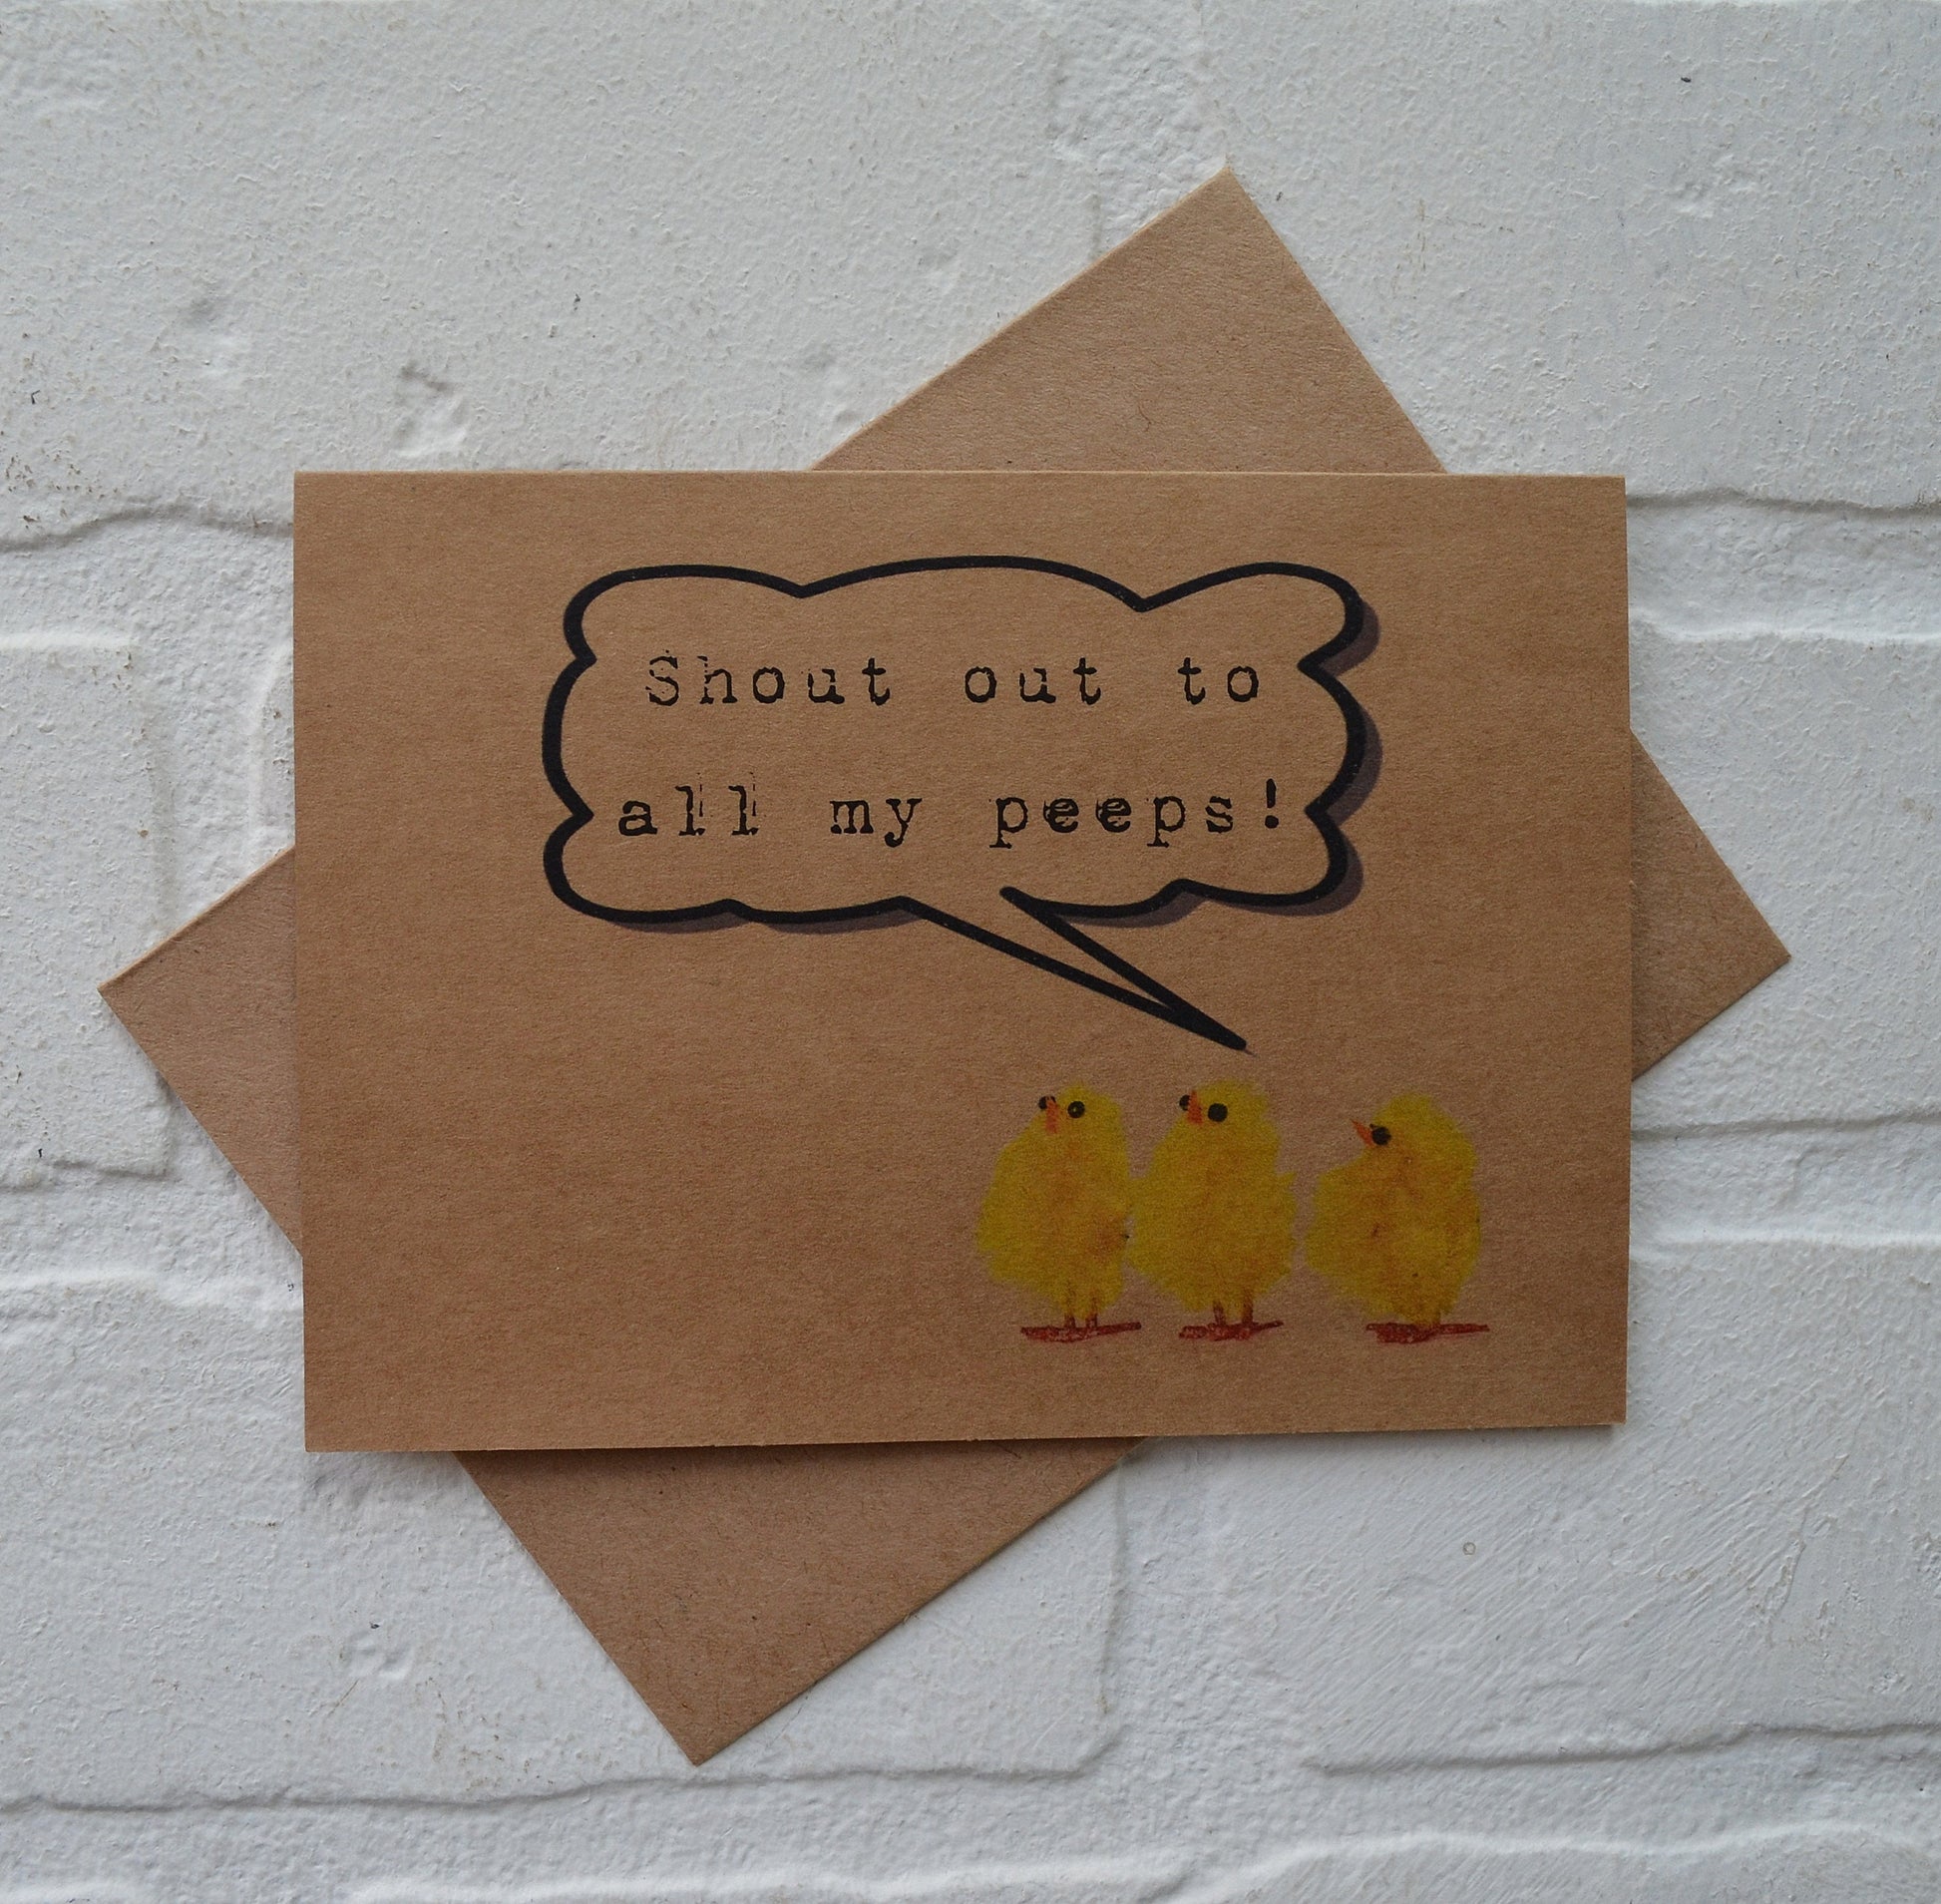 Shout out to
all my peeps!